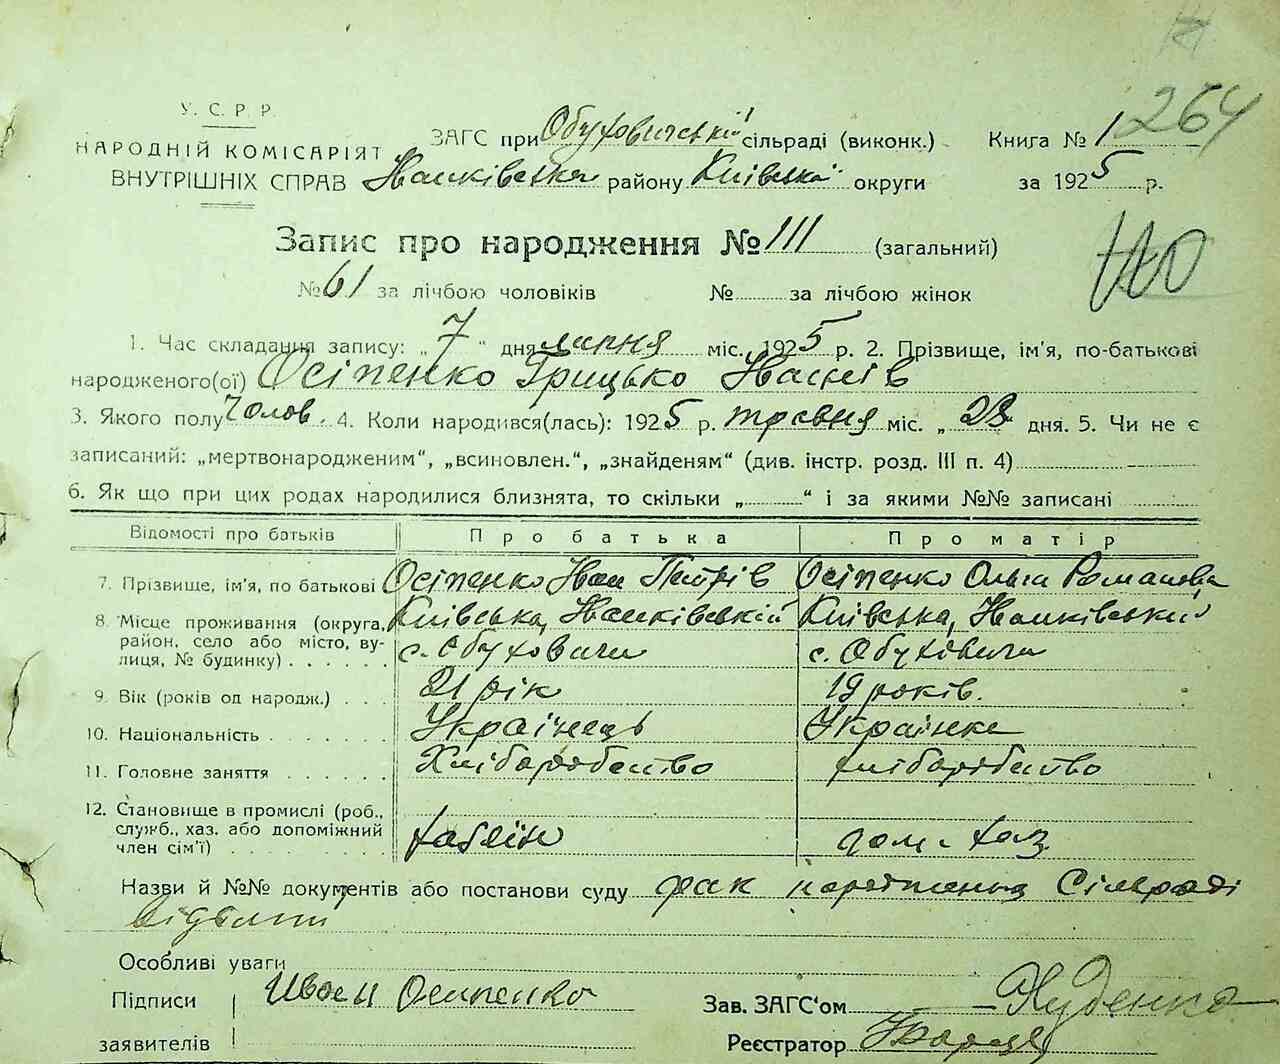 264
У. С. Р. Р.
НАРОДНІЙ КОМІСАРІЯТ
ВНУТРІШНІХ СПРАВ
ЗАГС при Обуховичській сільраді (виконк.) Книга № 1
Іванківська району Київська округи за 1925 р.
Запис про народження № 111 (загальний)
110
№ 61 за лічбою чоловіків № за лічбою жінок
1. Час складання запису: „ 7 “ дня липня міс. 1925 р. 2. Прізвище, ім'я, по-батькові
народженого(ої) Осіпенко Грицько Іванів
3. Якого полу Чолов. 4. Коли народився(лась): 1925 р. травня міс. „ 23 дня. 5. Чи не є
записаний: „мертвонародженим“, „всиновлен.“, „знайденям“ (див. інстр. розд. III п. 4)
6. Як що при цих родах народилися близнята, то скільки „ “ і за якими №№ записані
Відомості про батьків Про батька Про матір
7. Прізвище, ім'я, по батькові Осіпенко Іван Петрів Осіпенко Ольга Романова
8. Місце проживання (округа, район, село або місто, вулиця, № будинку) Київська, Іванківський Київська, Іванківський
с. Обуховичи с. Обуховичи
9. Вік (років од народж.) 21 рік 19 років.
10. Національність Українець Українка
11. Головне заняття Хліборобство хліборобство
12. Становище в промислі (роб., служб., хаз. або допоміжний член сім'ї) хазяїн дом. хаз
Назви й №№ документів або постанови суду
Особливі уваги
Підписи Иван Осипенко Зав. ЗАГС'ом
заявителів Реєстратор